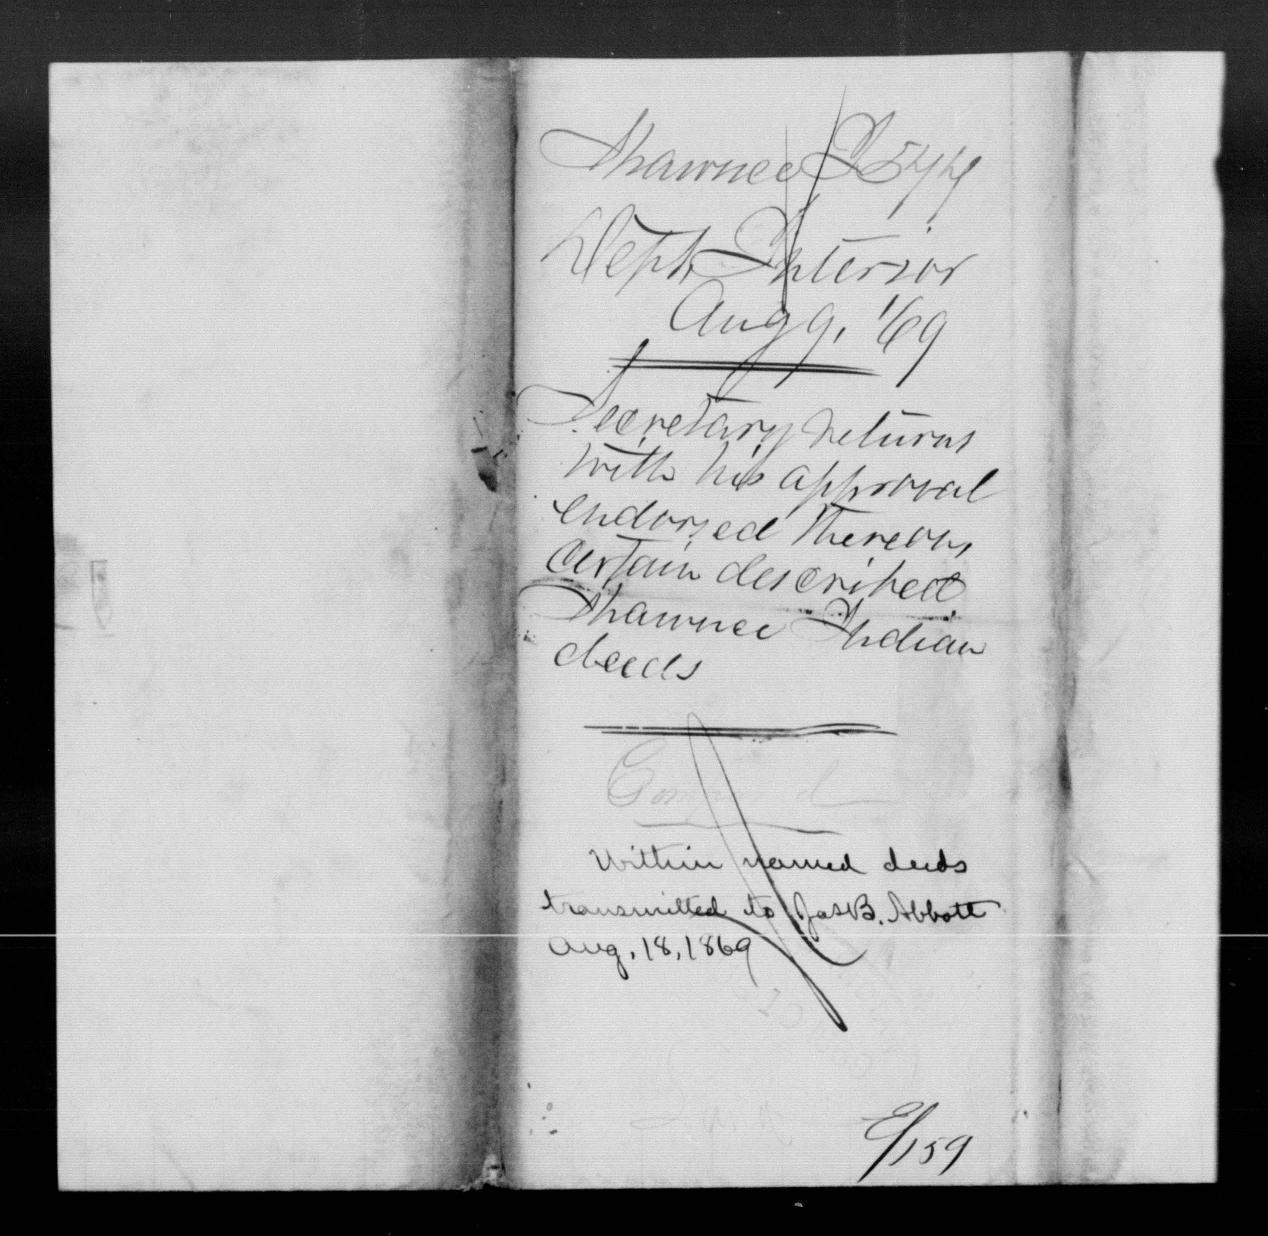 Shawnee I 544
Dept. Interior
Aug 9, '69
Secretary returns
with his approval
endorsed thereon,
certain described
Shawnee Indian
deeds
Within named deeds
transmitted to Jas B. Abbott
Aug, 18, 1869
E/159